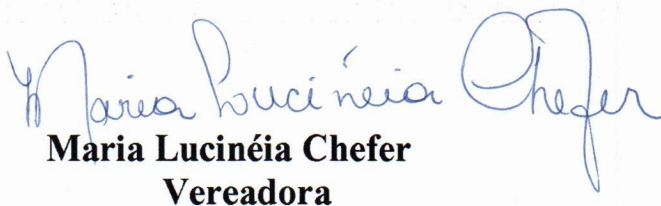 Maria Lucinéia Chefer
Maria Lucinéia Chefer
Vereadora